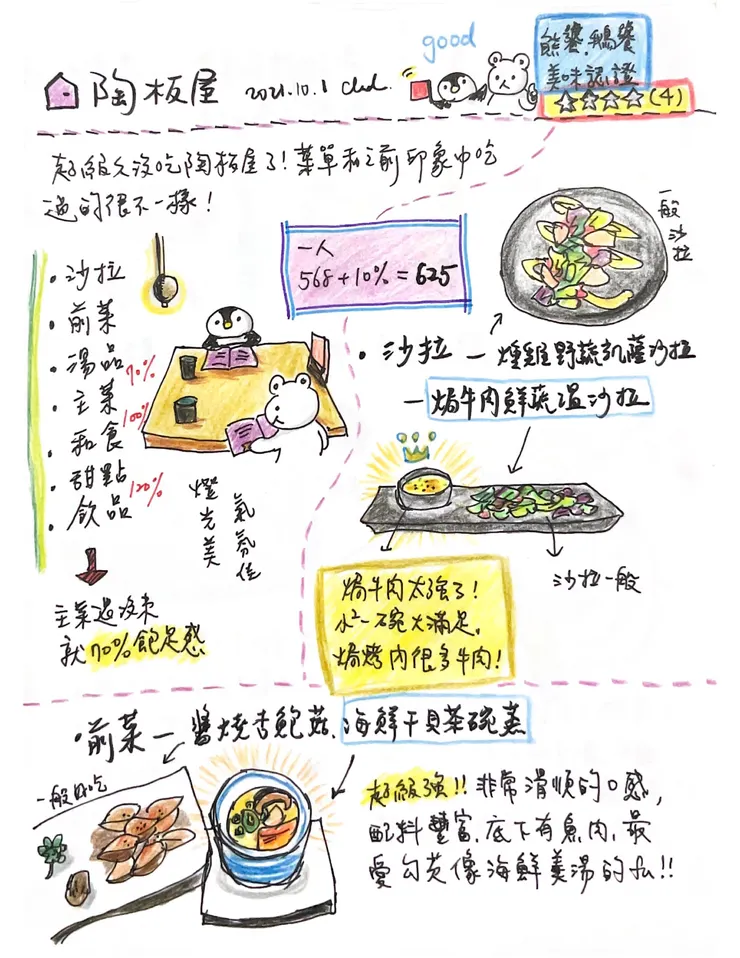 good
熊饗.鵝饗
美味認證
☆☆☆☆(4)
陶板屋 2021.10.1
超級久沒吃陶板屋了!菜單和之前印象中吃
過的很不一樣!
一人
568+10%=625
一般沙拉
・沙拉
・前菜
・湯品 70%
・主菜 100%
・和食
・甜點 120%
・飲品
燈光美
氣氛佳
主菜過後來
就70%飽足感
・沙拉 – 燻雞野蔬凱薩沙拉
– 焗牛肉鮮蔬溫沙拉
焗牛肉太強了!
小小一碗大滿足,
焗烤內很多牛肉!
沙拉一般
・前菜 – 醬燒杏鮑菇、海鮮干貝茶碗蒸
一般好吃
超級強!!非常滑順的口感,
配料豐富.底下有魚肉.最
愛勾芡像海鮮羹湯的fu!!